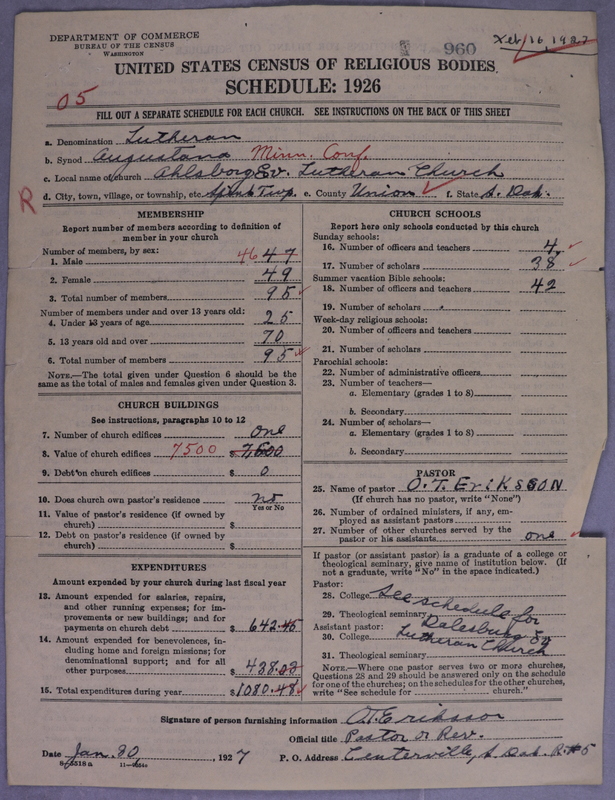 DEPARTMENT OF COMMERCE
BUREAU OF THE CENSUS
WASHINGTON
960
Feb 16 1927
UNITED STATES CENSUS OF RELIGIOUS BODIES
SCHEDULE: 1926
05
FILL OUT A SEPARATE SCHEDULE FOR EACH CHURCH. SEE INSTRUCTIONS ON THE BACK OF THIS SHEET
a. Denomination Lutheran
b. Synod Augustana Minn. Conf.
c. Local name of church Ahlsborg Ev. Lutheran Church
R
d. City, town, village, or township, etc. Spink Twp. e. County Union f. State S. Dak.
MEMBERSHIP
Report number of members according to definition of
member in your church
Number of members, by sex:
1. Male 46 47
2. Female 49
3. Total number of members 95
Number of members under and over 13 years old:
4. Under 13 years of age 25
5. 13 years old and over 70
6. Total number of members 95
NOTE.—The total given under Question 6 should be the
same as the total of males and females given under Question 3.
CHURCH BUILDINGS
See instructions, paragraphs 10 to 12
7. Number of church edifices one
8. Value of church edifices 7500 $ 7500
9. Debt on church edifices $ 0
10. Does church own pastor's residence no
Yes or No
11. Value of pastor's residence (if owned by
church) $
12. Debt on pastor's residence (if owned by
church) $
EXPENDITURES
Amount expended by your church during last fiscal year
13. Amount expended for salaries, repairs,
and other running expenses; for im-
provements or new buildings; and for
payments on church debt $ 642.45
14. Amount expended for benevolences, in-
cluding home and foreign missions; for
denominational support; and for all
other purposes $ 438.03
15. Total expenditures during year $ 1080.48
CHURCH SCHOOLS
Report here only schools conducted by this church
Sunday schools:
16. Number of officers and teachers 4
17. Number of scholars 38
Summer vacation Bible schools:
18. Number of officers and teachers 42
19. Number of scholars
Week-day religious schools:
20. Number of officers and teachers
21. Number of scholars
Parochial schools:
22. Number of administrative officers
23. Number of teachers—
a. Elementary (grades 1 to 8)
b. Secondary
24. Number of scholars—
a. Elementary (grades 1 to 8)
b. Secondary
PASTOR
25. Name of pastor O. T. ERIKSSON
(If church has no pastor, write "None")
26. Number of ordained ministers, if any, em-
ployed as assistant pastors
27. Number of other churches served by the
pastor or his assistants one
If pastor (or assistant pastor) is a graduate of a college or
theological seminary, give name of institution below. (If
not a graduate, write "No" in the space indicated.)
Pastor:
28. College See schedule for
29. Theological seminary Dalesburg Ev.
Assistant pastor:
30. College Lutheran Church
31. Theological seminary
NOTE.—Where one pastor serves two or more churches,
Questions 28 and 29 should be answered only on the schedule
for one of the churches; on the schedules for the other churches,
write "See schedule for church."
Signature of person furnishing information O. T. Eriksson
Official title Pastor or Rev.
Date Jan. 30, 1927 P. O. Address Centerville, S. Dak. R. #5